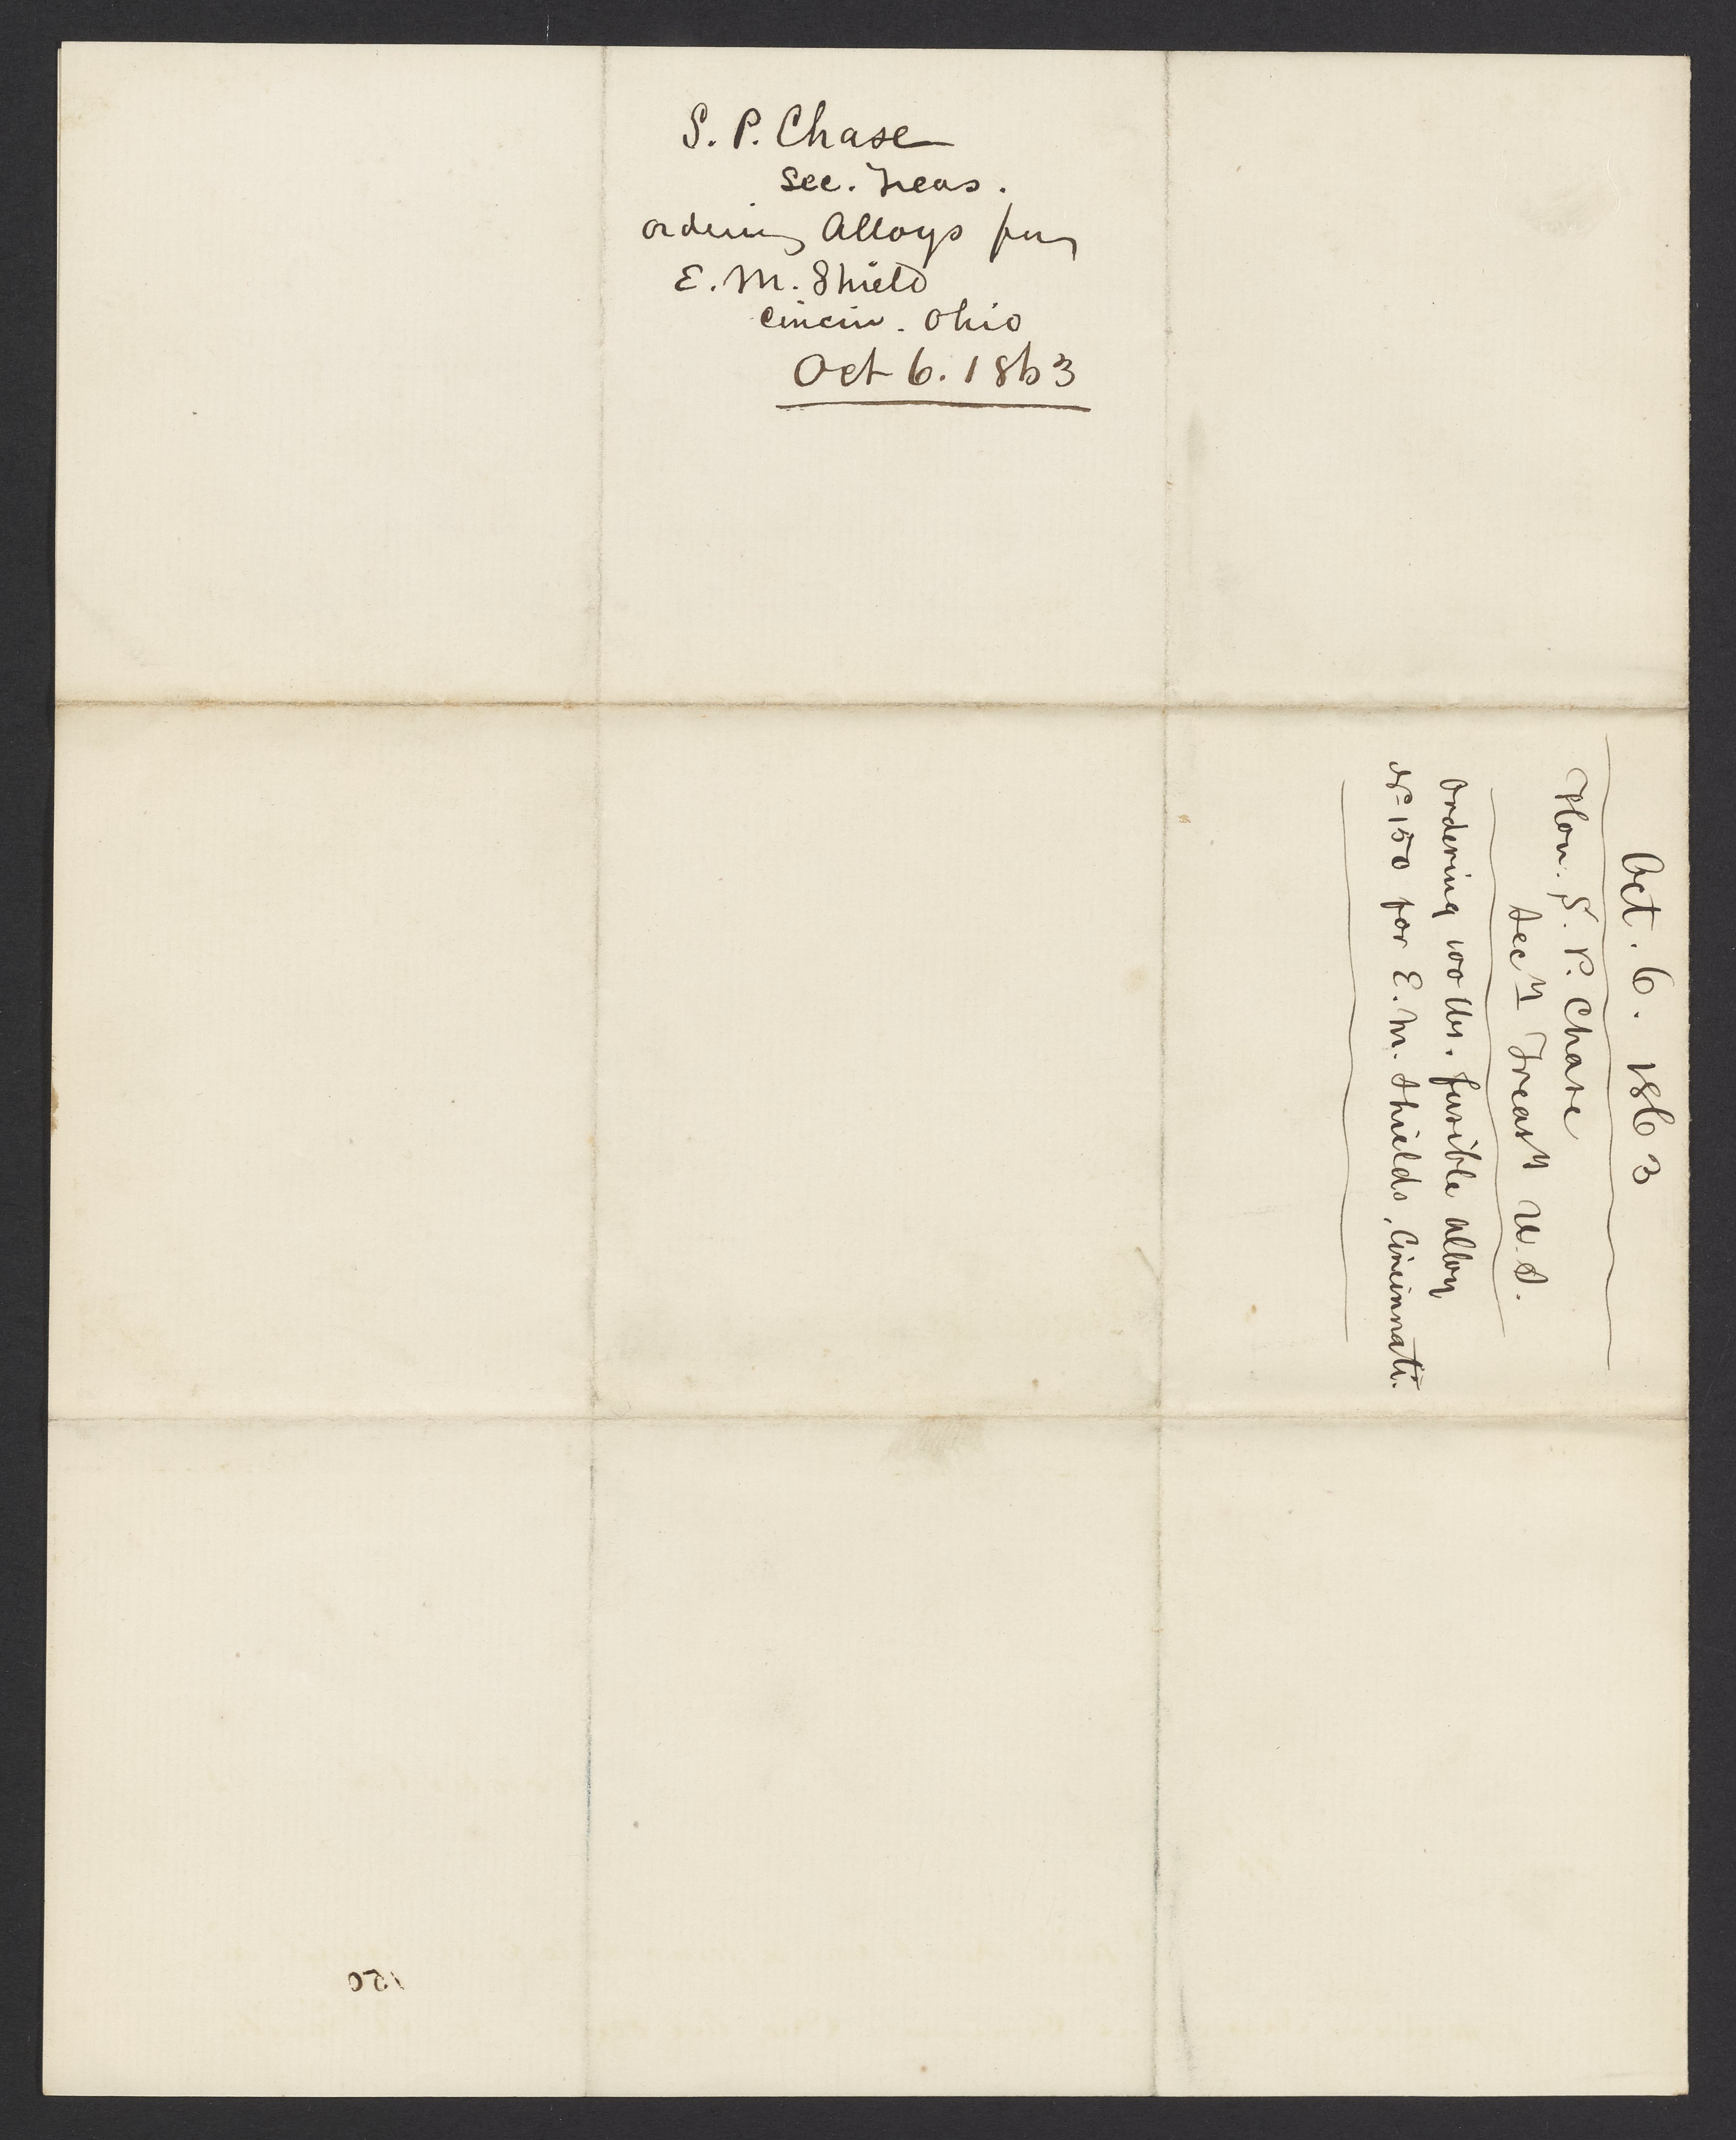 S. P. Chase
Sec. Treas.
ordering Alloys for
E. M. Shield
Cincin. Ohio
Oct 6. 1863
Oct. 6. 1863
Hon. S. P. Chase
Secy Treasy U.S.
Ordering 100 lbs. fusible alloy
No 150 for E. M. Shields, Cincinnati.